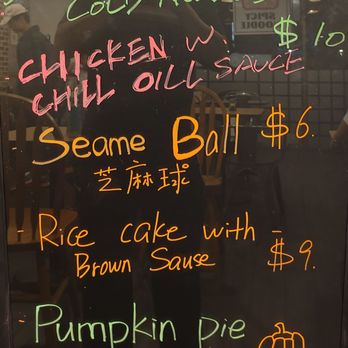 COLD
$10
CHICKEN W
CHILL OILL SAUCE
Seame Ball $6.
芝麻球
- Rice cake with -
Brown Sause $9.
- Pumpkin pie